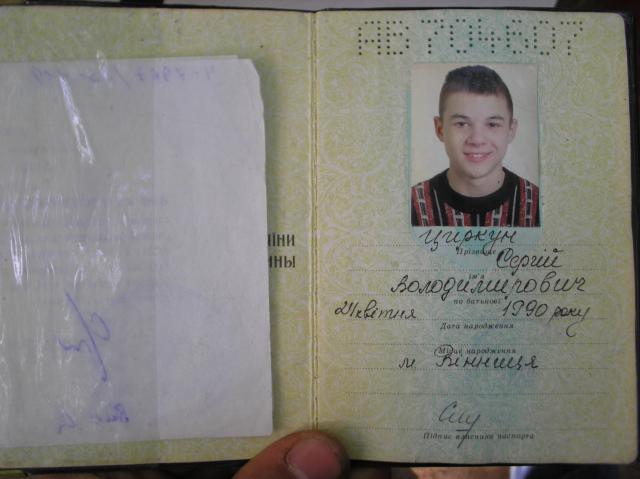 АВ704607
іни
ины
Циркун
Прізвище
Сергій
ім'я
Володимирович
по батькові
21 квітня 1990 року
Дата народження
Місце народження
м Вінниця
Підпис власника паспорта